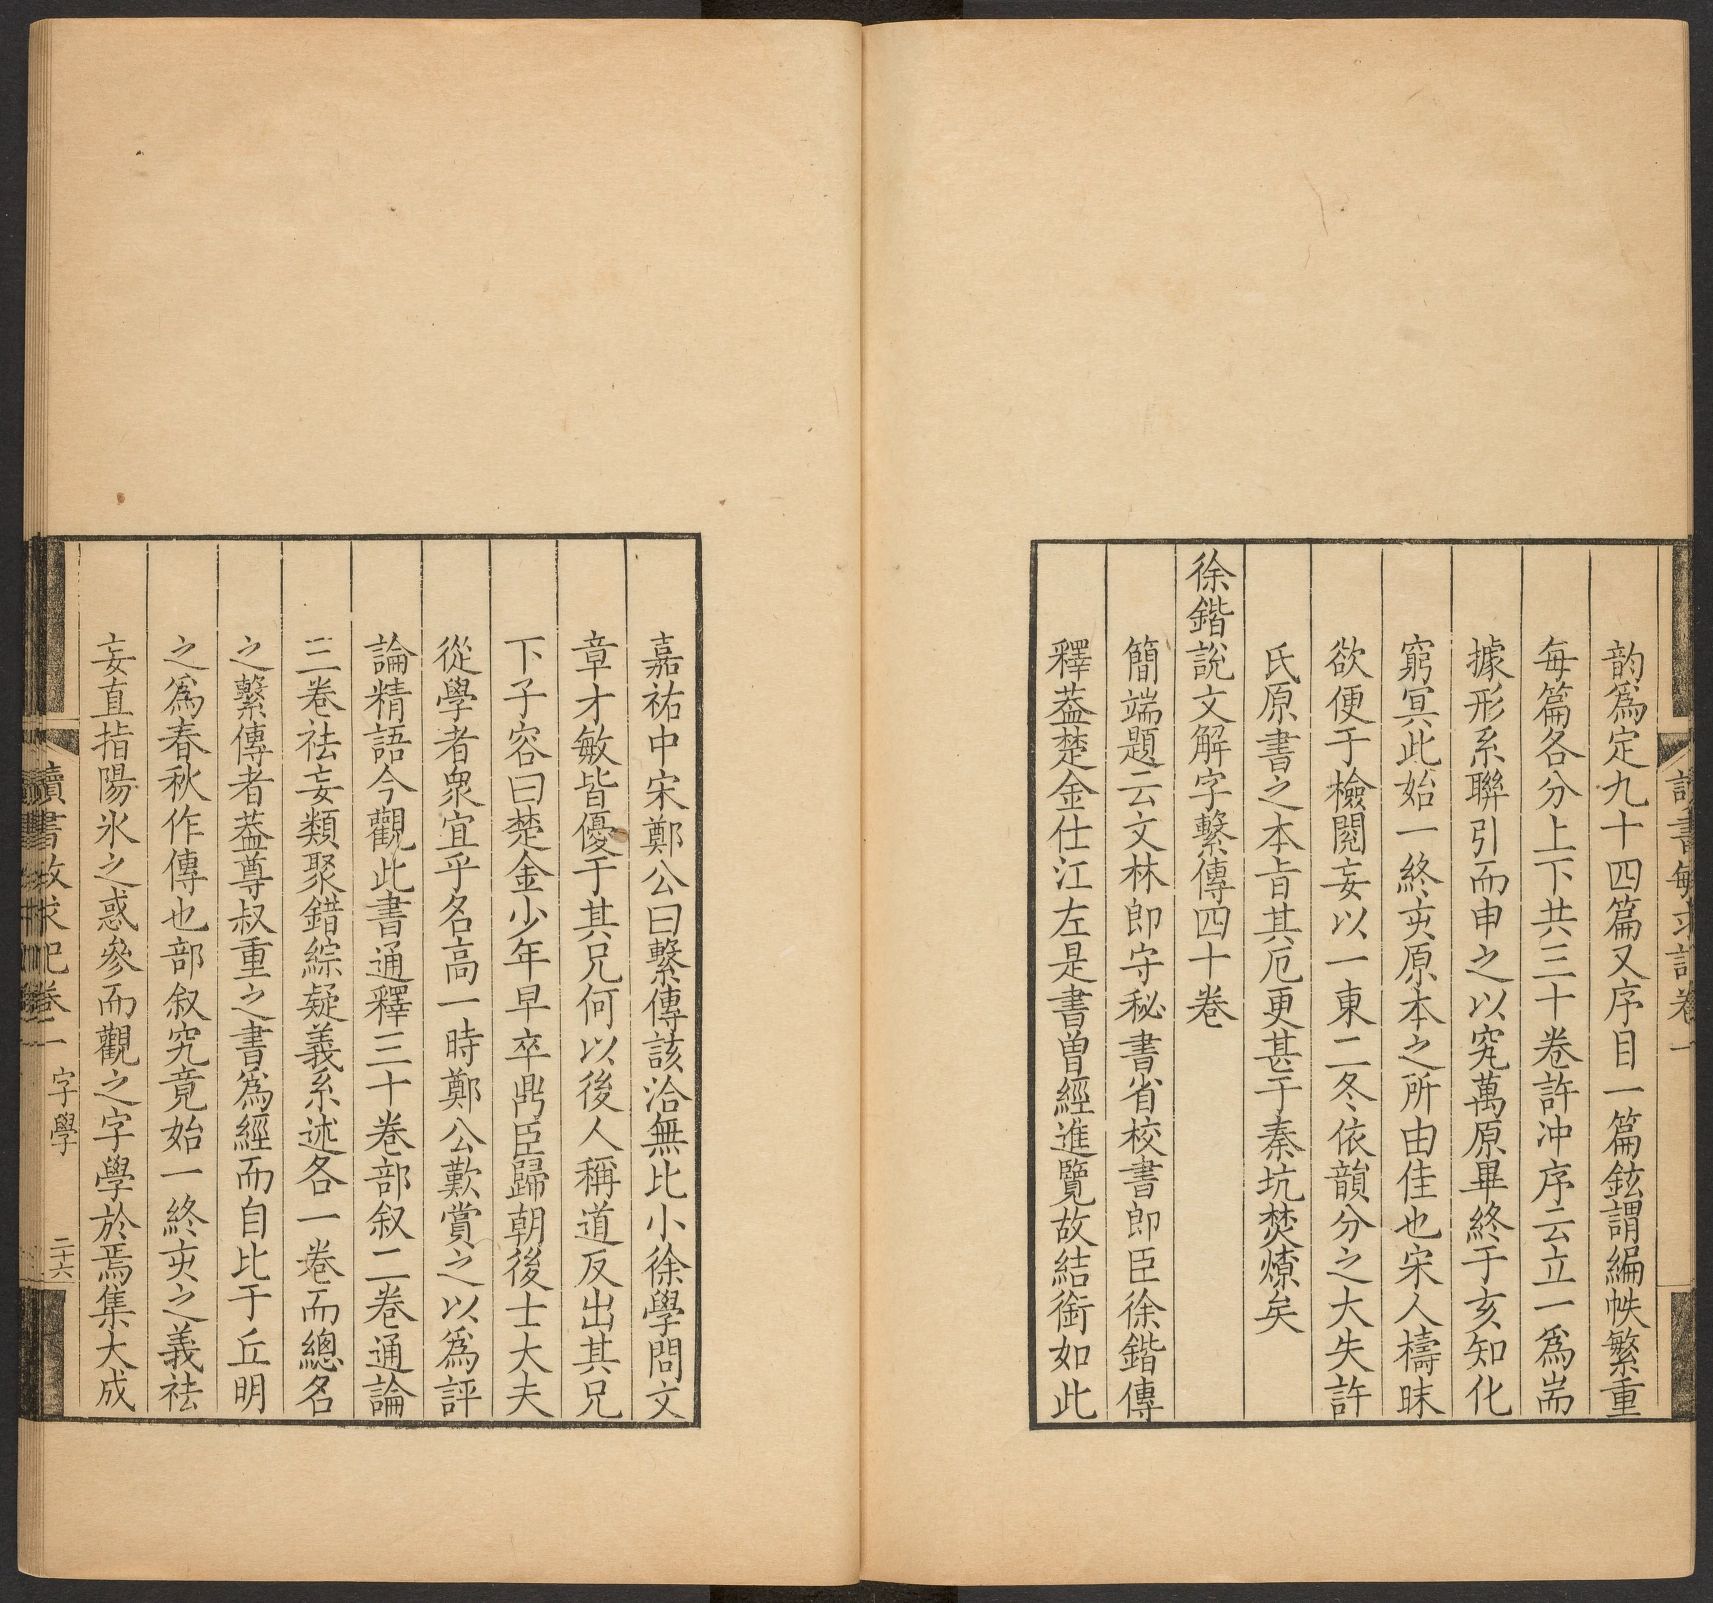 韵爲定九十四篇又序目一篇鉉謂編帙繁重
每篇各分上下共三十卷許冲序云立一爲耑
據形系聯引而申之以究萬原畢終于亥知化
窮冥此始一終亥原本之所由佳也宋人檮昧
欲便于檢閱妄以一東二冬依韻分之大失許
氏原書之本旨其厄更甚于秦坑焚燎矣
徐鍇說文解字繫傳四十卷
簡端題云文林郎守秘書省校書郎臣徐鍇傳
釋葢楚金仕江左是書曾經進覽故結銜如此
嘉祐中宋鄭公曰繫傳該洽無比小徐學問文
章才敏皆優于其兄何以後人稱道反出其兄
下子容曰楚金少年早卒鼎臣歸朝後士大夫
從學者衆宜乎名高一時鄭公歎賞之以爲評
論精語今觀此書通釋三十卷部叙二卷通論
三卷祛妄類聚錯綜疑義系述各一卷而總名
之繫傳者葢尊叔重之書爲經而自比于丘明
之爲春秋作傳也部叙究竟始一終亥之義祛
妄直指陽氷之惑參而觀之字學於焉集大成
讀書敏求記卷一 字學 二十六